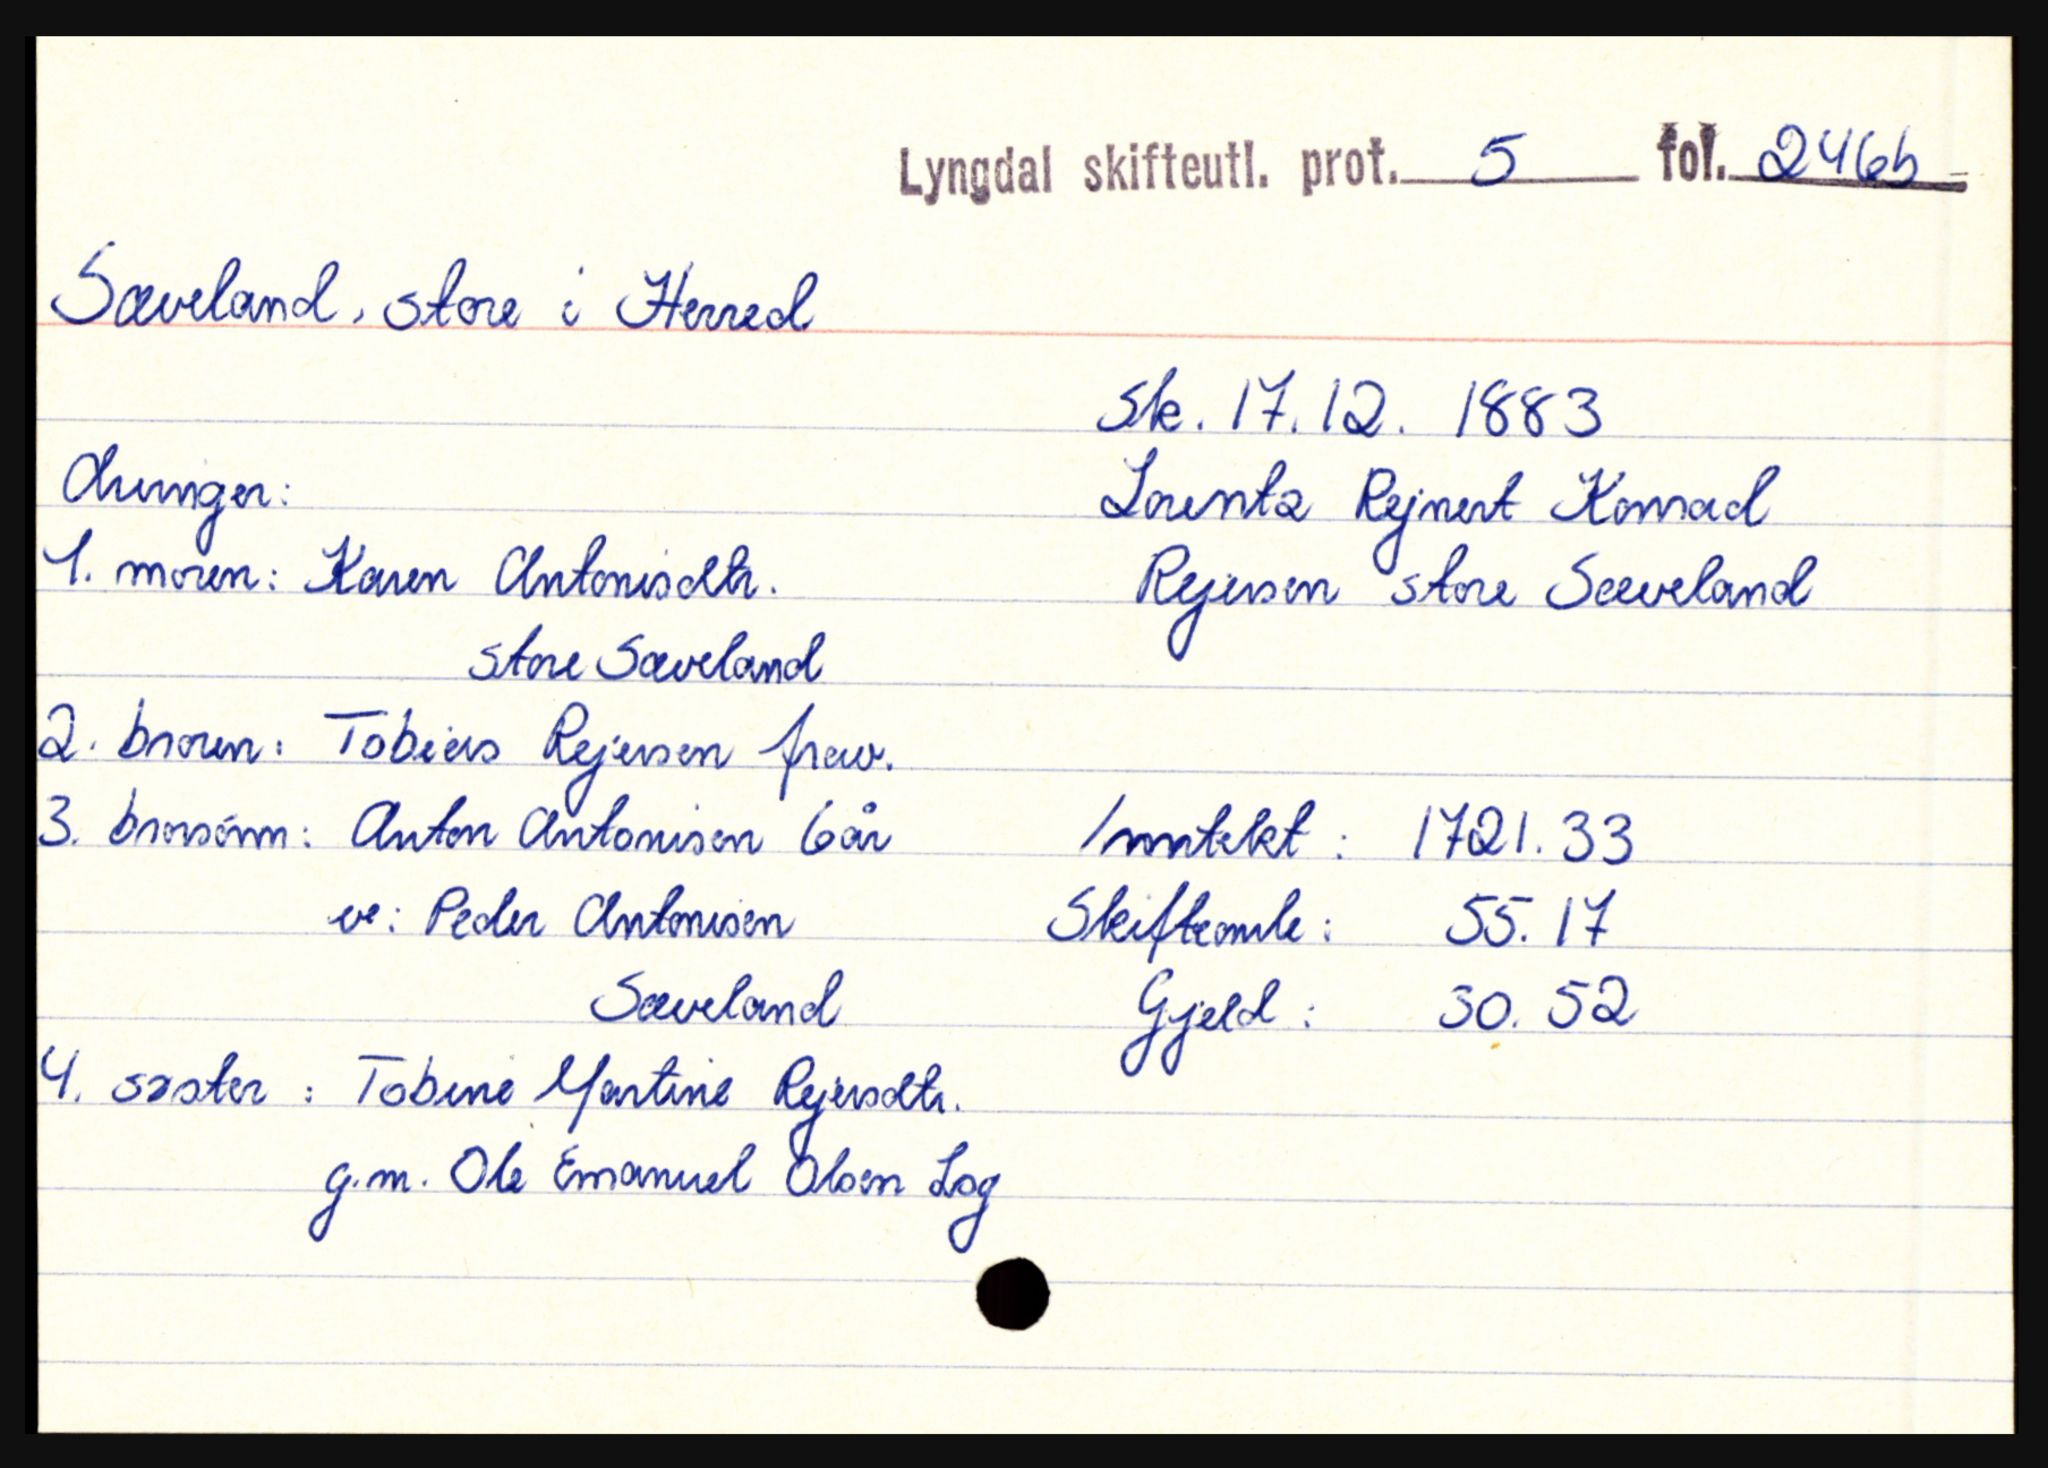 Lyngdal skifteutl. prot. 5 fol. 246b
Sæveland, store i Herred
Sk. 17.12. 1883
Lorentz Rejnert Konrad
Rejersen store Sæveland
Arvinger:
1. moren: Karen Antonisdtr.
store Sæveland
2. broren: Tobias Rejersen frav.
3. brorsønn: Anton Antonisen 6 år
ve: Peder Antonisen
Sæveland
4. søster : Tobine Martine Rejersdtr.
g.m. Ole Emanuel Olsen Log
Inntekt : 1721.33
Skifteomk : 55.17
Gjeld : 30.52